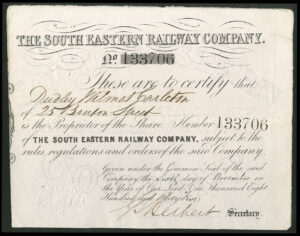 THE SOUTH EASTERN RAILWAY COMPANY.
No. 133706
These are to certify that
Dudley Wilmot Carleton
of 25 Bruton Street
is the Proprietor of the Share Number 133706
of THE SOUTH EASTERN RAILWAY COMPANY, subject to the
rules, regulations and orders of the said Company.
Given under the Common Seal of the said
Company the sixth day of November in
the Year of Our Lord One Thousand Eight
Hundred and fifty
Herbert Secretary.